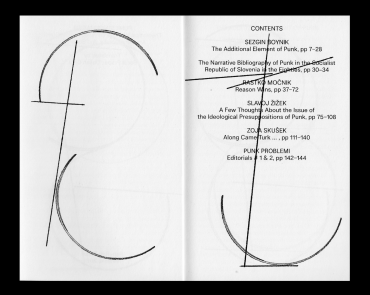 CONTENTS
SEZGIN BOYNIK
The Additional Element of Punk, pp 7–28
The Narrative Bibliography of Punk in the Socialist
Republic of Slovenia in the Eighties, pp 30–34
RASTKO MOČNIK
Reason Wins, pp 37–72
SLAVOJ ŽIŽEK
A Few Thoughts About the Issue of
the Ideological Presuppositions of Punk, pp 75–108
ZOJA SKUŠEK
Along Came Turk ... , pp 111–140
PUNK PROBLEMI
Editorials # 1 & 2, pp 142–144